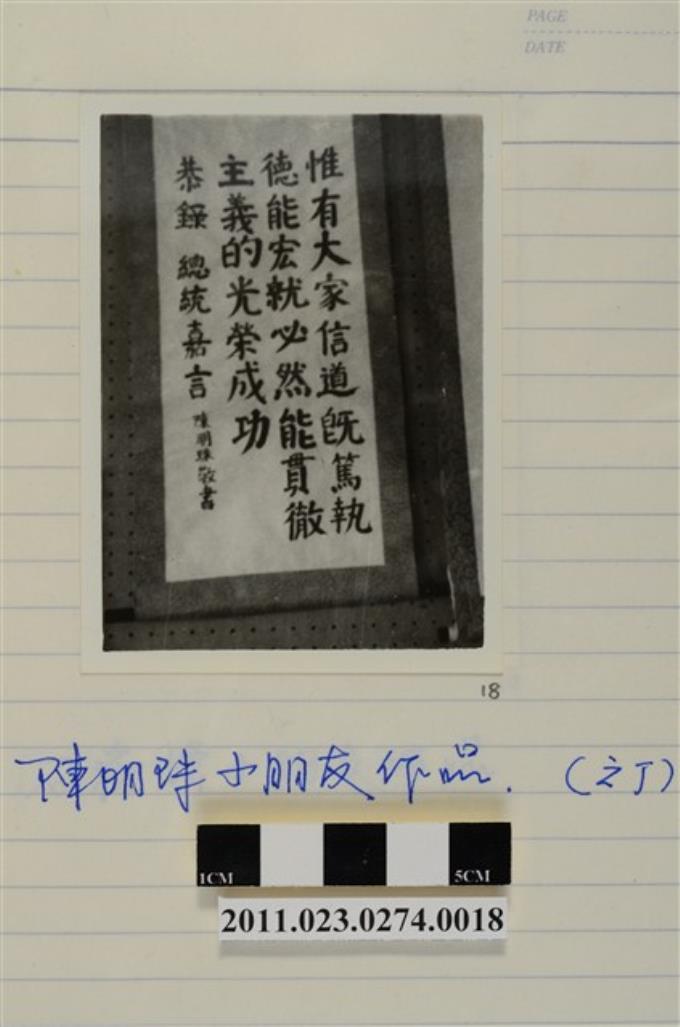 PAGE
DATE
惟有大家信道既篤執
德能宏就必然能貫徹
主義的光榮成功
恭錄 總統嘉言 陳明珠敬書
18
陳明珠小朋友作品.(之丁)
1CM 5CM
2011.023.0274.0018